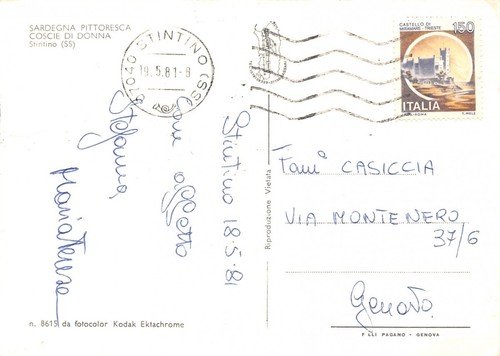 SARDEGNA PITTORESCA
COSCIE DI DONNA
Stintino (SS)
07040 STINTINO (SS)
19.5.81-8
CASTELLO DI
MIRAMARE - TRIESTE
150
ITALIA
Stintino 18.5.81
con affetto
Stefano,
Maria Teresa
Riproduzione Vietata
Fam. CASICCIA
VIA MONTENERO
37/6
Genova.
n. 8615 da fotocolor Kodak Ektachrome
F.LLI PAGANO - GENOVA